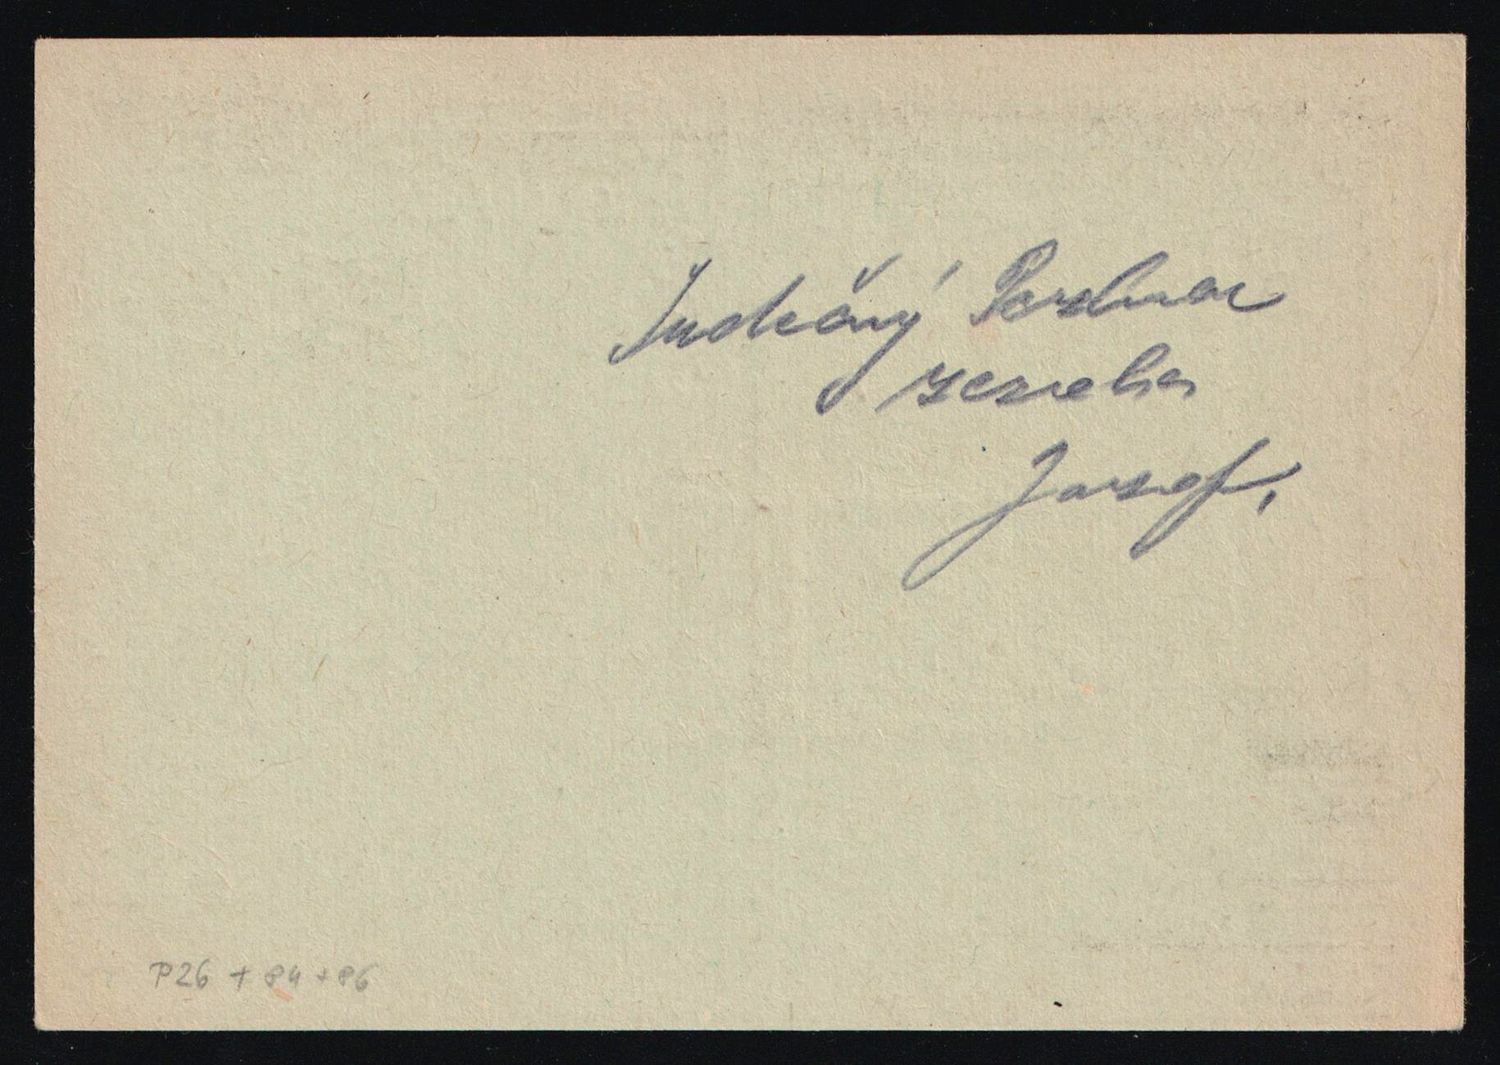 Srdečný Pozdrav
Josef.
P26 + 84 + 86